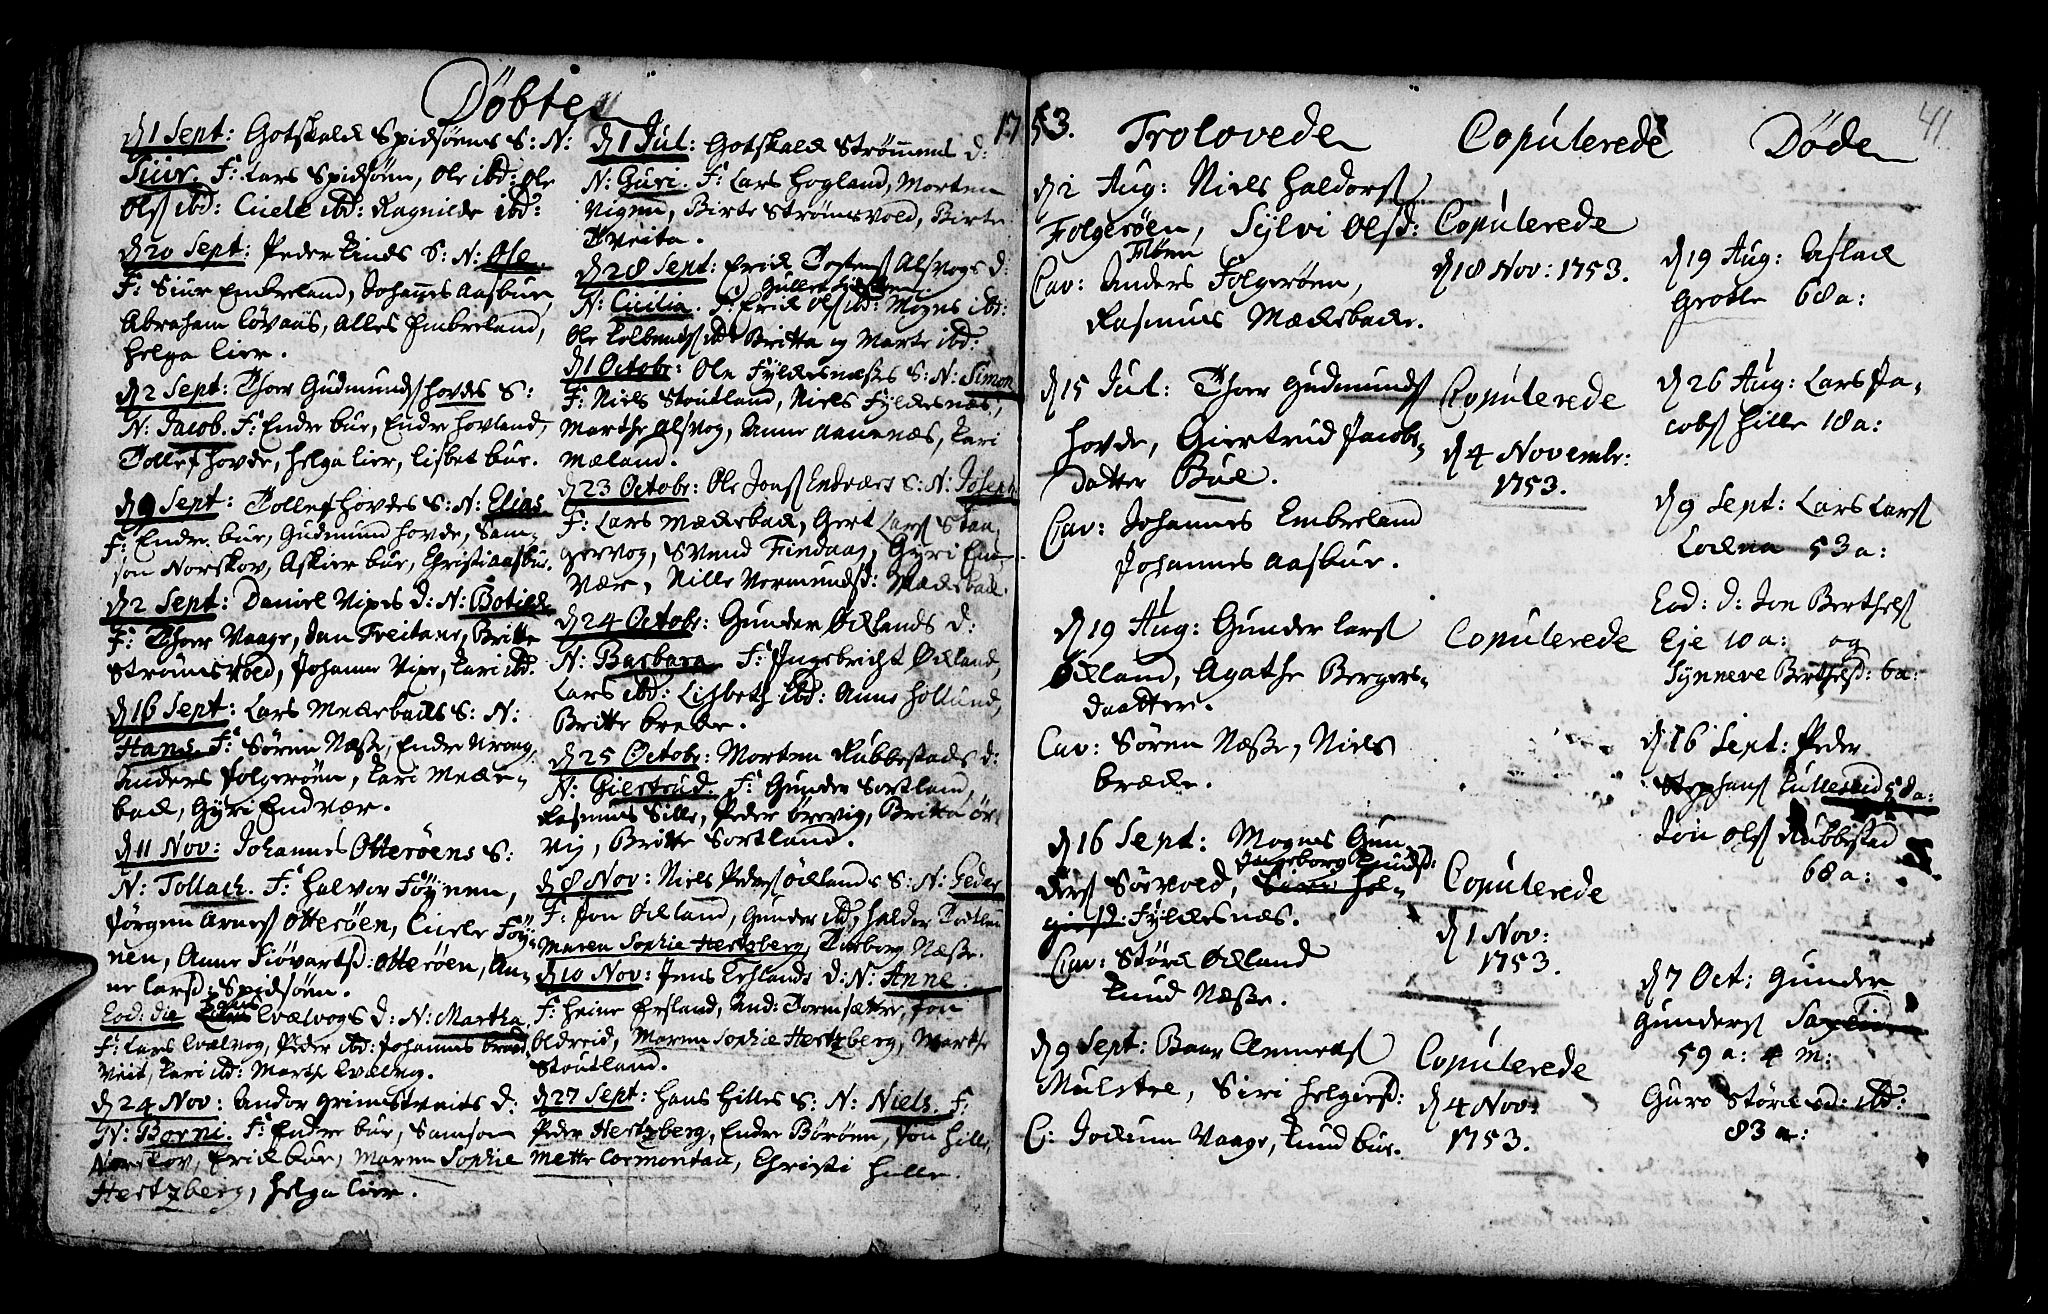 Döbte
d 1 Sept: Gotskald Spidsöens S: N:
Siur. F: Lars Spidsöen, Ole ibd: Ole
Ols ibd: Ciele ibd: Ragnilde ibd:
d 20 Sept: Peder Linds S: N: Ose
F: Siur Emberland, Johannes Aasbue,
Abraham Lövaas, Alles Emberland,
Helga Lier.
d 2 Sept: Thoer Gudmunds Hovdes S:
N: Jacob. F: Endre bur, Endre Hovland,
Tollef Hovde, Helga Lier, Lisbet bur.
d 9 Sept: Tollef Hovdes S: N: Elias
F: Endre bur, Gudmund Hovde, Sam-
son Norskov, Askier bur, Christi Aasbue.
d 2 Sept: Daniel Vipes d: N: Botilde
F: Thoer Vaage, Jan Freitane, Britte
Strömsvold, Johanne Vipe, Kari ibd.
d 16 Sept: Lars Medebacks S: N:
Hans. F: Sören Næsse, Endre Urang,
Anders Folgeröen, Kari Mede-
back, Gyri Endvær.
d 11 Nov: Johannes Otteröens S:
N: Tollach. F: Halvor Föÿnen,
Jörgen Arnes Otteröen, Ciele Föÿ-
nen, Anne Siövartsd: Otteröen, An-
ne Larsd: Spidsöen.
Eod: die Qvalvogs d: N: Martha
F: Lars Qvalvog, Peder ibd: Johannes
Veit, Kari ibd: Marthe Qvalvog.
d 24 Nov: Andor Grimstveits d:
N: Borni. F: Endre bur, Samson
Norskov, Erick bur, Maren Sophie
Hertzberg, Helga Lier.
d 1 Jul: Gotskald Strömens d:
N: Guri. F: Lars Hogland, Morten
Vigen, Birte Strömsvold, Birte
Tveita.
d 28 Sept: Erick Tostens Alsvogs d:
N: Cicilia. F: Erick Ols ibd: Mogns ibd:
Ole Kolbens ibd Britta og Marte ibd:
d 1 Octobr: Ole Fyldesnæsses S: N: Simon
F: Niels Stoutland, Niels Fyldesnæs,
Marthe Alsvog, Anne Aanenæs, Kari
Mæland.
d 23 Octobr: Ole Jons Endvære S: N: Joseph
F: Lars Medeback, Gert Lars Staa-
gervog, Svend Findaas, Gyri End-
vær, Nille Vermundsd: Medeback.
d 24 Octobr: Gunder Öcklands d:
N: Barbara. F: Ingebricht Öckland,
Lars ibd: Lisbeth ibd: Anne Hollund,
Britte brede.
d 25 Octobr: Morten Rubbestads d:
N: Giertrud. F: Gunder Sortland,
Rasmus Sille, Peder brevig, Britta ör-
vig, Britte Sortland.
d 8 Nov: Niels Peders Öcklands S: N: Peder
F: Jon Öckland, Gunder ibd, Haldor
Maren Sophie Hertzberg, Torbor Næsse.
d 10 Nov: Jens Erslands d: N: Anne.
F: Heine Ersland, And: Tormsætter, Jon
Oldereid, Maren Sophie Hertzberg, Marthe
Stoutland.
d 27 Sept: Hans Hilles S: N: Niels. F:
Peder Hertzberg, Endre Böröen, Jon Hille,
Mette Cormontan, Christi Hille.
17 53. Trolovede
d 2 Aug: Niels Haldors
Folgeröen, Sylvi Olsd:
Cav: Anders Folgeröen,
Rasmus Medeback.
d 15 Jul: Thoer Gudmunds
Hovde, Giertrud Jacobs-
datter Bue.
Cav: Johannes Emberland
Johannes Aasbue.
d 19 Aug: Gunder Lars
Öckland, Agathe Bergers-
daatter.
Cav: Sören Næsse, Niels
brede.
d 16 Sept: Mogens Gun-
ders Sörvold, Ingeborg Knudsd:
Siri Hel-
giesd: Fyldesnæs.
Cav: Störk Öckland
Knud Næsse.
d 9 Sept: Baar Clemets
Mulstre, Siri Helgiesd:
C: Jockum Vaage, Knud bur.
Copulerede
Copulerede
d 18 Nov: 1753.
Copulerede
d 4 Novembr:
1753.
Copulerede
Copulerede
d 1 Nov:
1753.
Copulerede
d 4 Nov:
1753.
41
Döde
d 19 Aug: Aslack
Grotle 68 a:
d 26 Aug: Lars Ja-
cobs Hille 18 a:
d 9 Sept: Lars Lars
Lockna 53 a:
Eod: d: Jon Berthels
Eje 10 a: og
Synneve Berthelsd: 6 a:
d 16 Sept: Peder
Stephans Kulleseid 58 a:
Jon Ols Rubbestad
68 a:
d 7 Oct: Gunder
Gunders
59 a: 4 m:
Guro Störksd: ibd:
83 a: